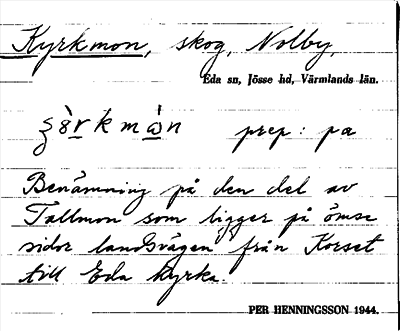 Kyrkmon, skog, Nolby,
Eda sn, Jösse hd, Värmlands län.
prep: pa
Benämning på den del av
Tallmon som ligger på ömse
sidor landsvägen från Korset
till Eda kyrka.
PER HENNINGSSON 1944.